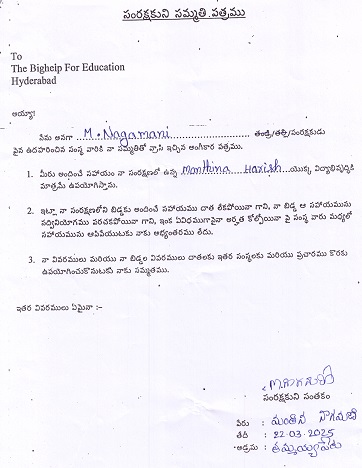 సంరక్షకుని సమ్మతి పత్రము
To
The Bighelp For Education
Hyderabad
అయ్యా!
నేను అనగా M. Nagamani తండ్రి/తల్లి/సంరక్షకుడు
పైన ఉదహరించిన సంస్థ వారికి నా సమ్మతితో వ్రాసి ఇచ్చిన అంగీకార పత్రము.
1. మీరు అందించే సహాయం నా సంరక్షణలో ఉన్న Manthina Harish యొక్క విద్యాభివృద్ధికి
మాత్రమే ఉపయోగిస్తాను.
2. ఇట్లా నా సంరక్షణలోని బిడ్డకు అందించే సహాయము దాత లేకపోయినా గాని, నా బిడ్డ ఆ సహాయమును
సద్వినియోగము పరచకపోయినా గాని, ఇంక ఏవిధముగానైనా అర్హత కోల్పోయినా పై సంస్థ వారు మధ్యలో
సహాయమును ఆపివేయుటకు నాకు అభ్యంతరము లేదు.
3. నా వివరములు మరియు నా బిడ్డల వివరములు దాతలకు ఇతర సంస్థలకు మరియు ప్రచారము కొరకు
ఉపయోగించుకొనుటకు నాకు సమ్మతము.
ఇతర వివరములు ఏమైనా :-
సంరక్షకుని సంతకం
పేరు : మంతిన నాగమణి
తేదీ : 22-03-2025
అడ్రసు :